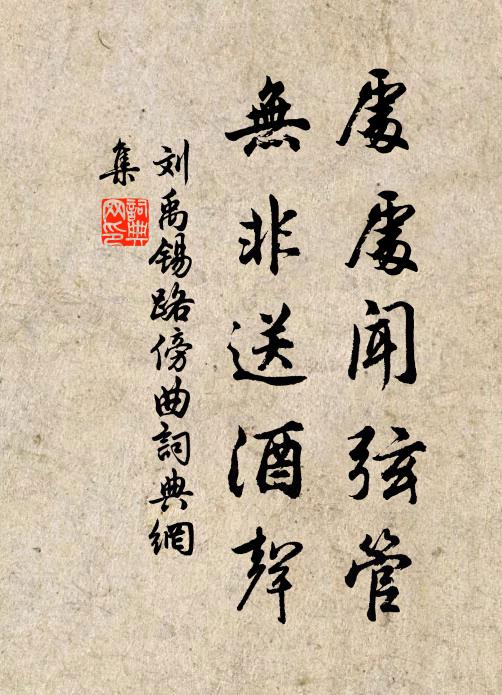 處處聞弦管
無非送酒聲
刘禹锡路傍曲詞典網
集
詞典
网印